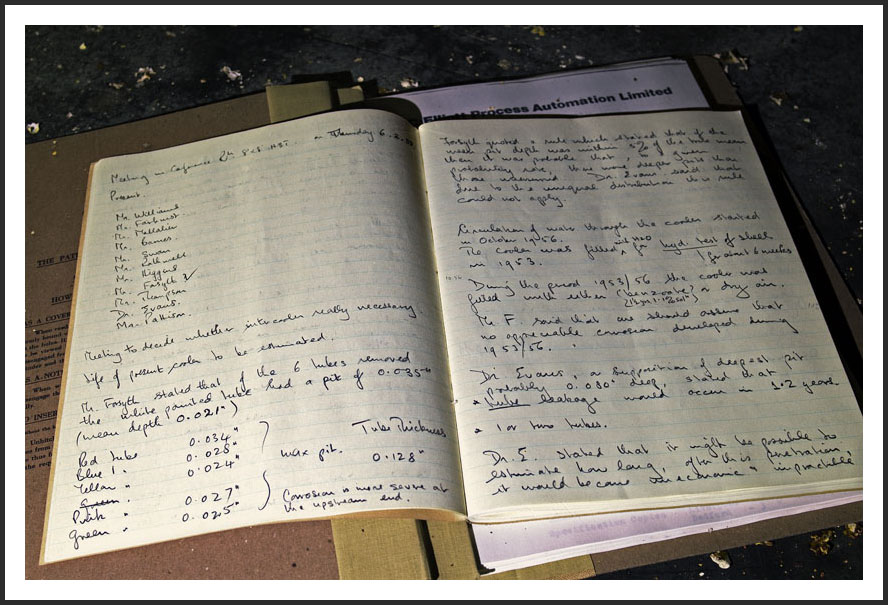 Elliott Process Automation Limited
Meeting in Conference on Thursday 6.2.
Present.
Mr. Williams
Mr. Fairhurst
Mr.
Mr. Games
Mr. Swan
Mr.
Mr. Higgins
Mr. Forsyth
Mr. Thompson
Dr. Evans.
Mr. Pattison.
Meeting to decide whether intercooler really necessary.
Life of present cooler to be estimated.
Mr. Forsyth stated that of the 6 tubes removed
the white painted tube had a pit of 0.035"
(mean depth 0.021")
Red tube 0.034"
Blue 0.028"
Yellow " 0.024"
Green "
Pink " 0.027"
Green " 0.025"
max pit.
Tube Thickness
0.128"
Corrosion is more severe at
the upstream end.
Forsyth quoted a rule which stated that if the
mean pit depth was within 5% of the tube mean
then it was probable that, to a given
probability rate, there were deeper pits than
those determined. Dr. Evans said that
due to the unequal distribution this rule
could not apply.
Circulation of water through the cooler started
in October 1956.
The cooler was filled with H2O for hyd. test of shell
in 1953. for about 6 weeks
During the period 1953/56 the cooler was
filled with either (benzoate) or dry air.
Mr F. said that one should assume that
no appreciable corrosion developed during
1953/56.
Dr. Evans, on supposition of deepest pit
probably 0.080" deep, stated that
* tube leakage would occur in 1.2 years
* 1 or two tubes.
Dr. E. stated that it might be possible to
estimate how long, after this penetration,
it would become uneconomic "
THE PAT
HOW
S A COVER
S A NOT
D INSER
Specification